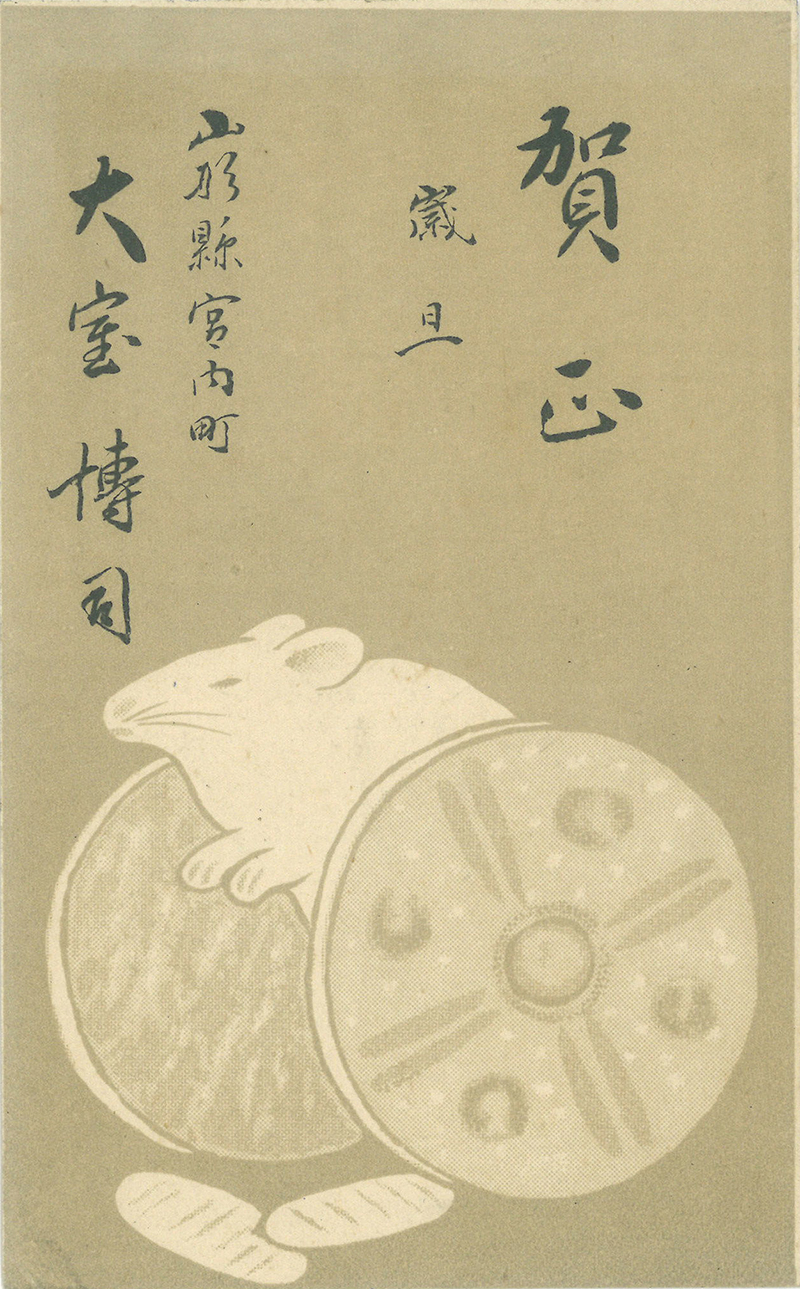 賀正
歳旦
山形縣宮内町
大室博司